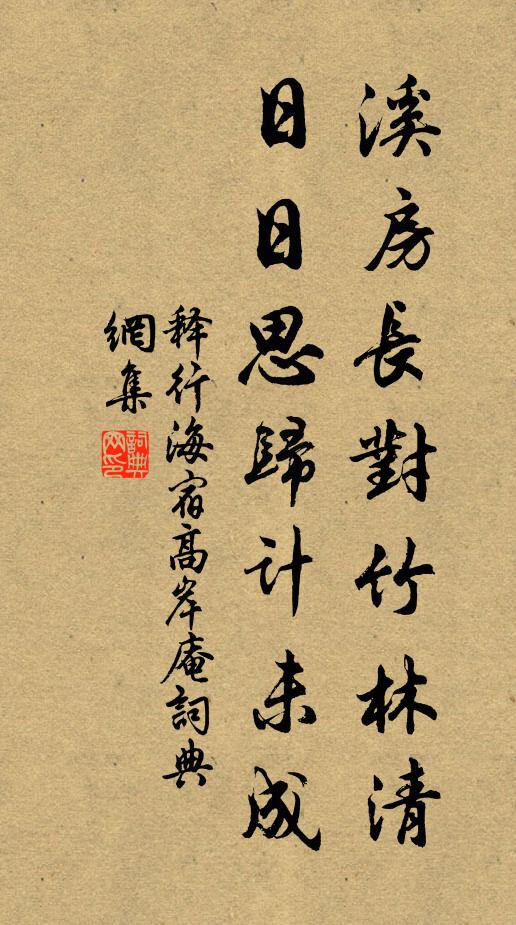 溪房長對竹林清
日日思歸計未成
释行海宿高岸庵詞典
網集
詞典
网印